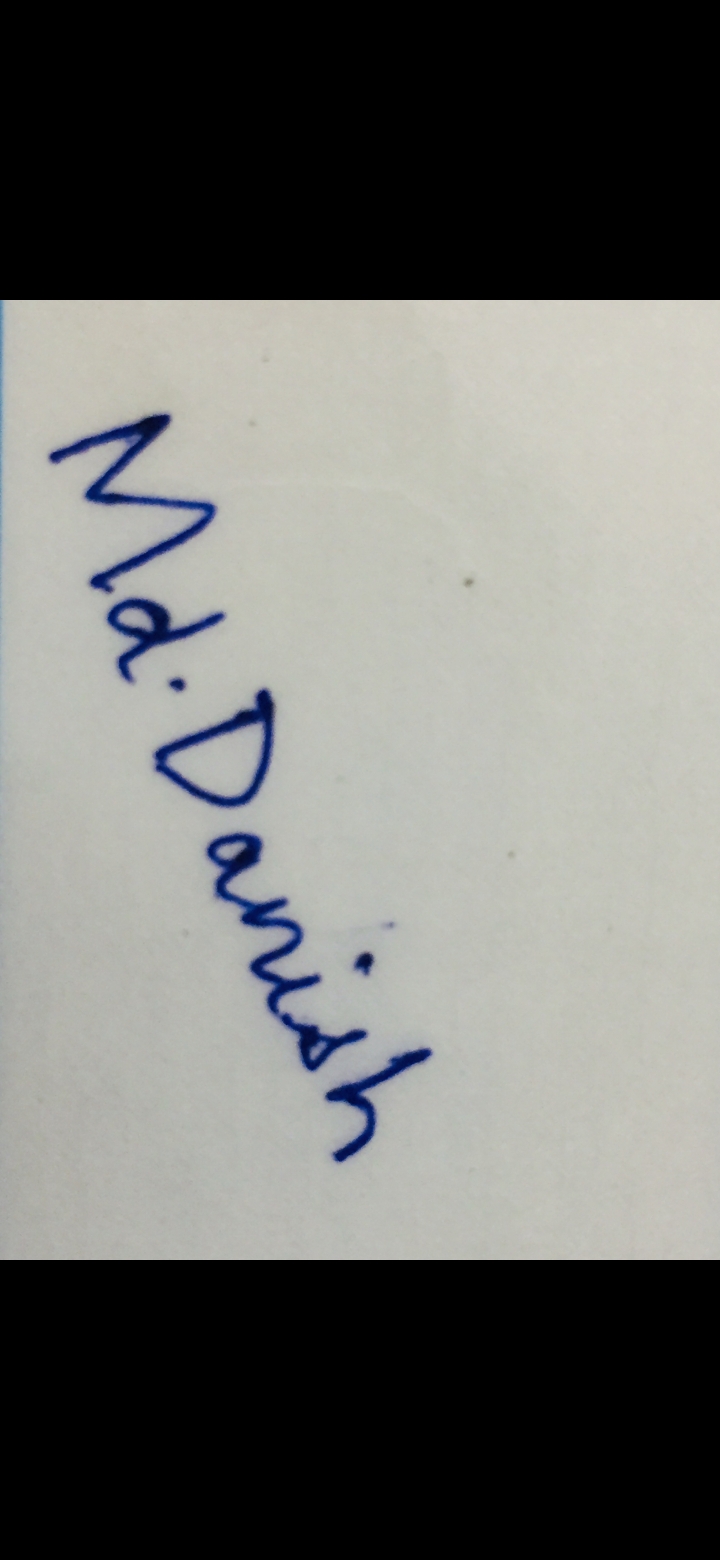 Md. Danish